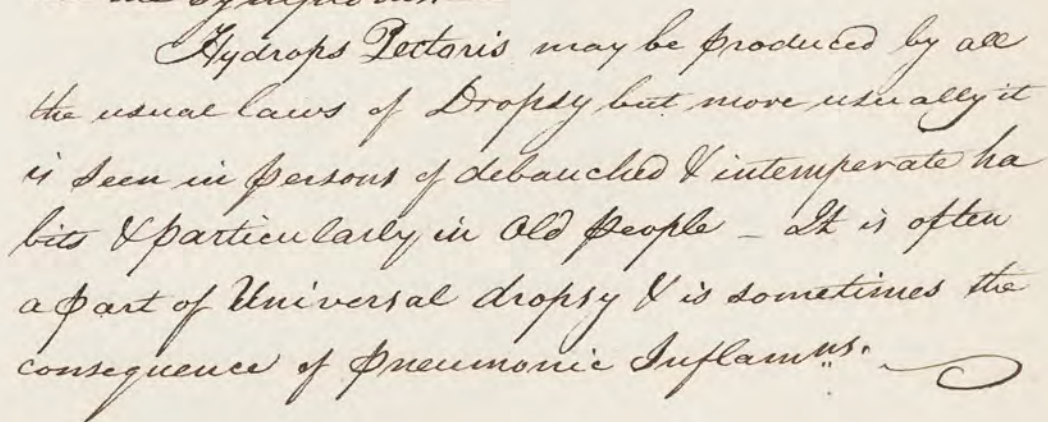 Hydrops Pectoris may be produced by all
the usual laws of Dropsy but more usually it
is seen in persons of debauched & intemperate ha
bits & particularly in Old people – It is often
a part of Universal dropsy & is sometimes the
consequence of pneumonic Inflamns.